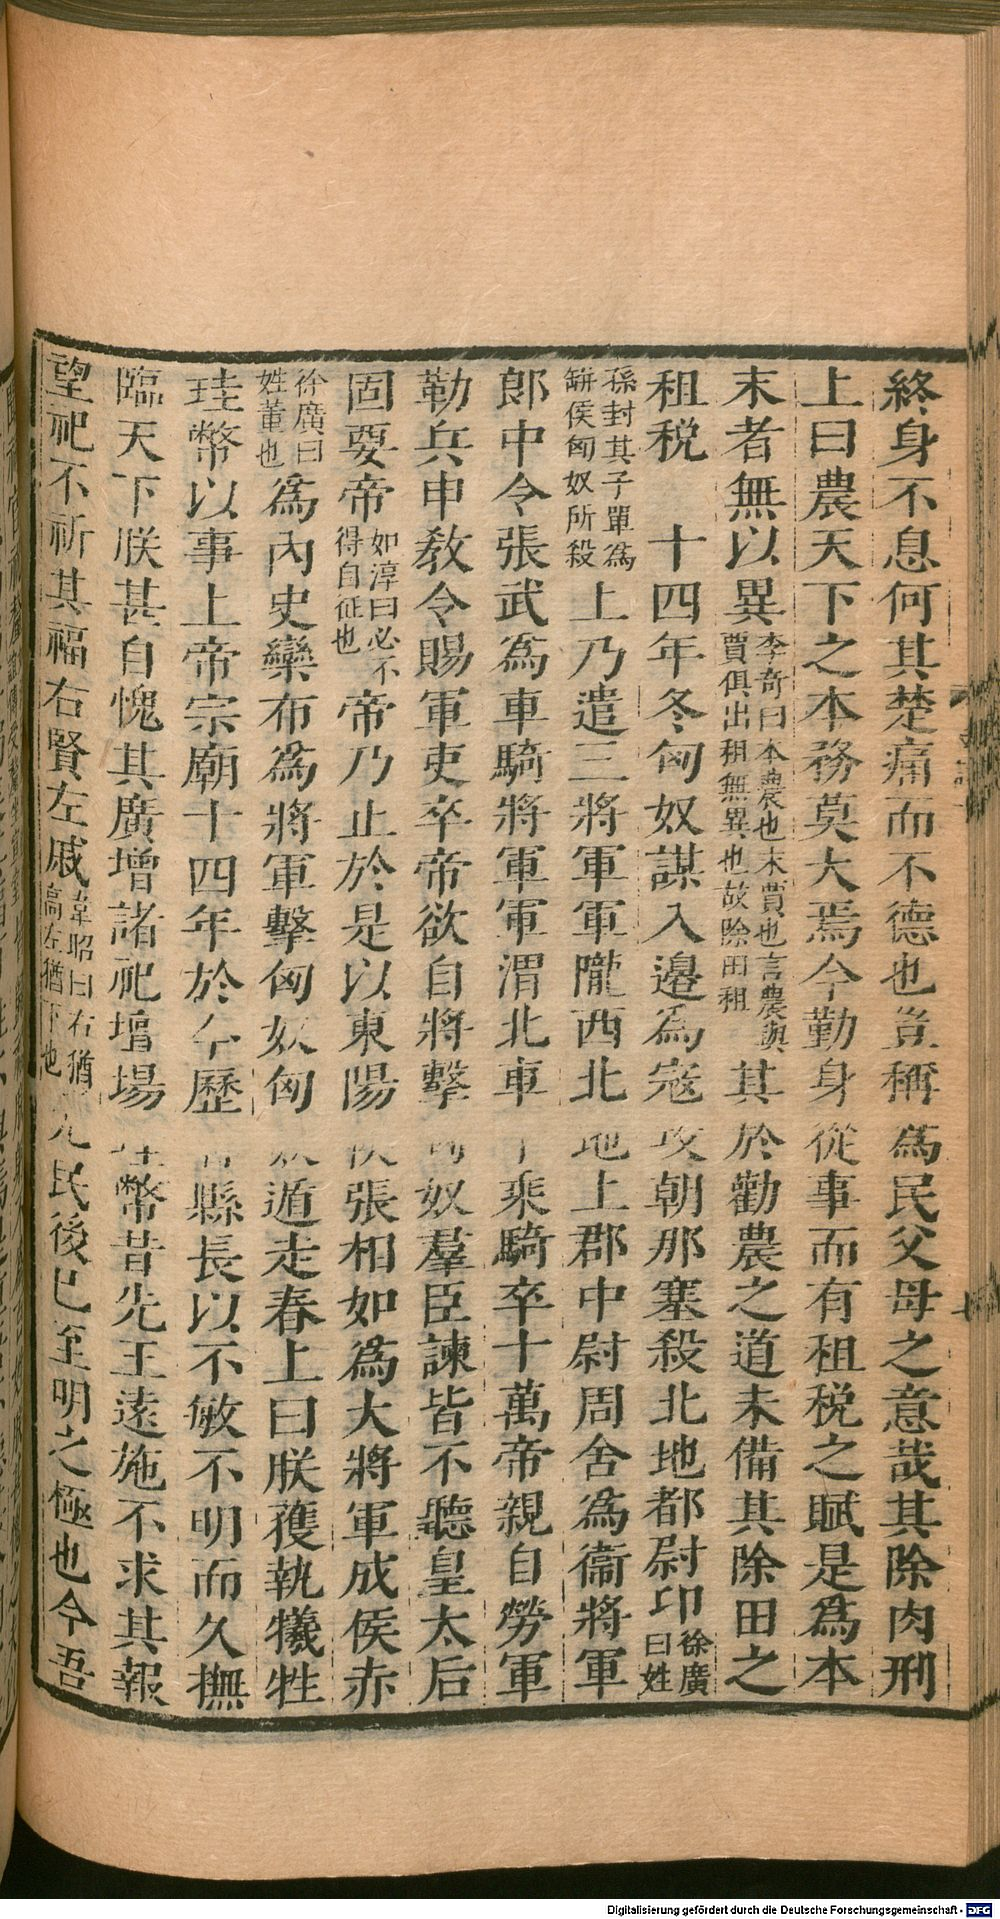 終身不息何其楚痛而不德也豈稱為民父母之意哉其除肉刑
上曰農天下之本務莫大焉今勤身從事而有租稅之賦是為本
末者無以異李奇曰本農也末賈也言農與賈俱出租無異也故除田租其於勸農之道未備其除田之
租稅　十四年冬匈奴謀入邊為寇攻朝那塞殺北地都尉卬徐廣曰姓
孫封其子單為缾侯匈奴所殺上乃遣三將軍軍隴西北地上郡中尉周舍為衞將軍
郎中令張武為車騎將軍軍渭北車千乘騎卒十萬帝親自勞軍
勒兵申教令賜軍吏卒帝欲自將擊匈奴羣臣諫皆不聽皇太后
固要帝如淳曰必不得自征也帝乃止於是以東陽侯張相如為大將軍成侯赤
徐廣曰姓董也為內史欒布為將軍擊匈奴匈奴遁走春上曰朕獲執犧牲
珪幣以事上帝宗廟十四年於今歷日縣長以不敏不明而久撫
臨天下朕甚自愧其廣增諸祀墠場珪幣昔先王遠施不求其報
望祀不祈其福右賢左戚韋昭曰右猶高左猶下也先民後已至明之極也今吾
Digitalisierung gefördert durch die Deutsche Forschungsgemeinschaft - DFG